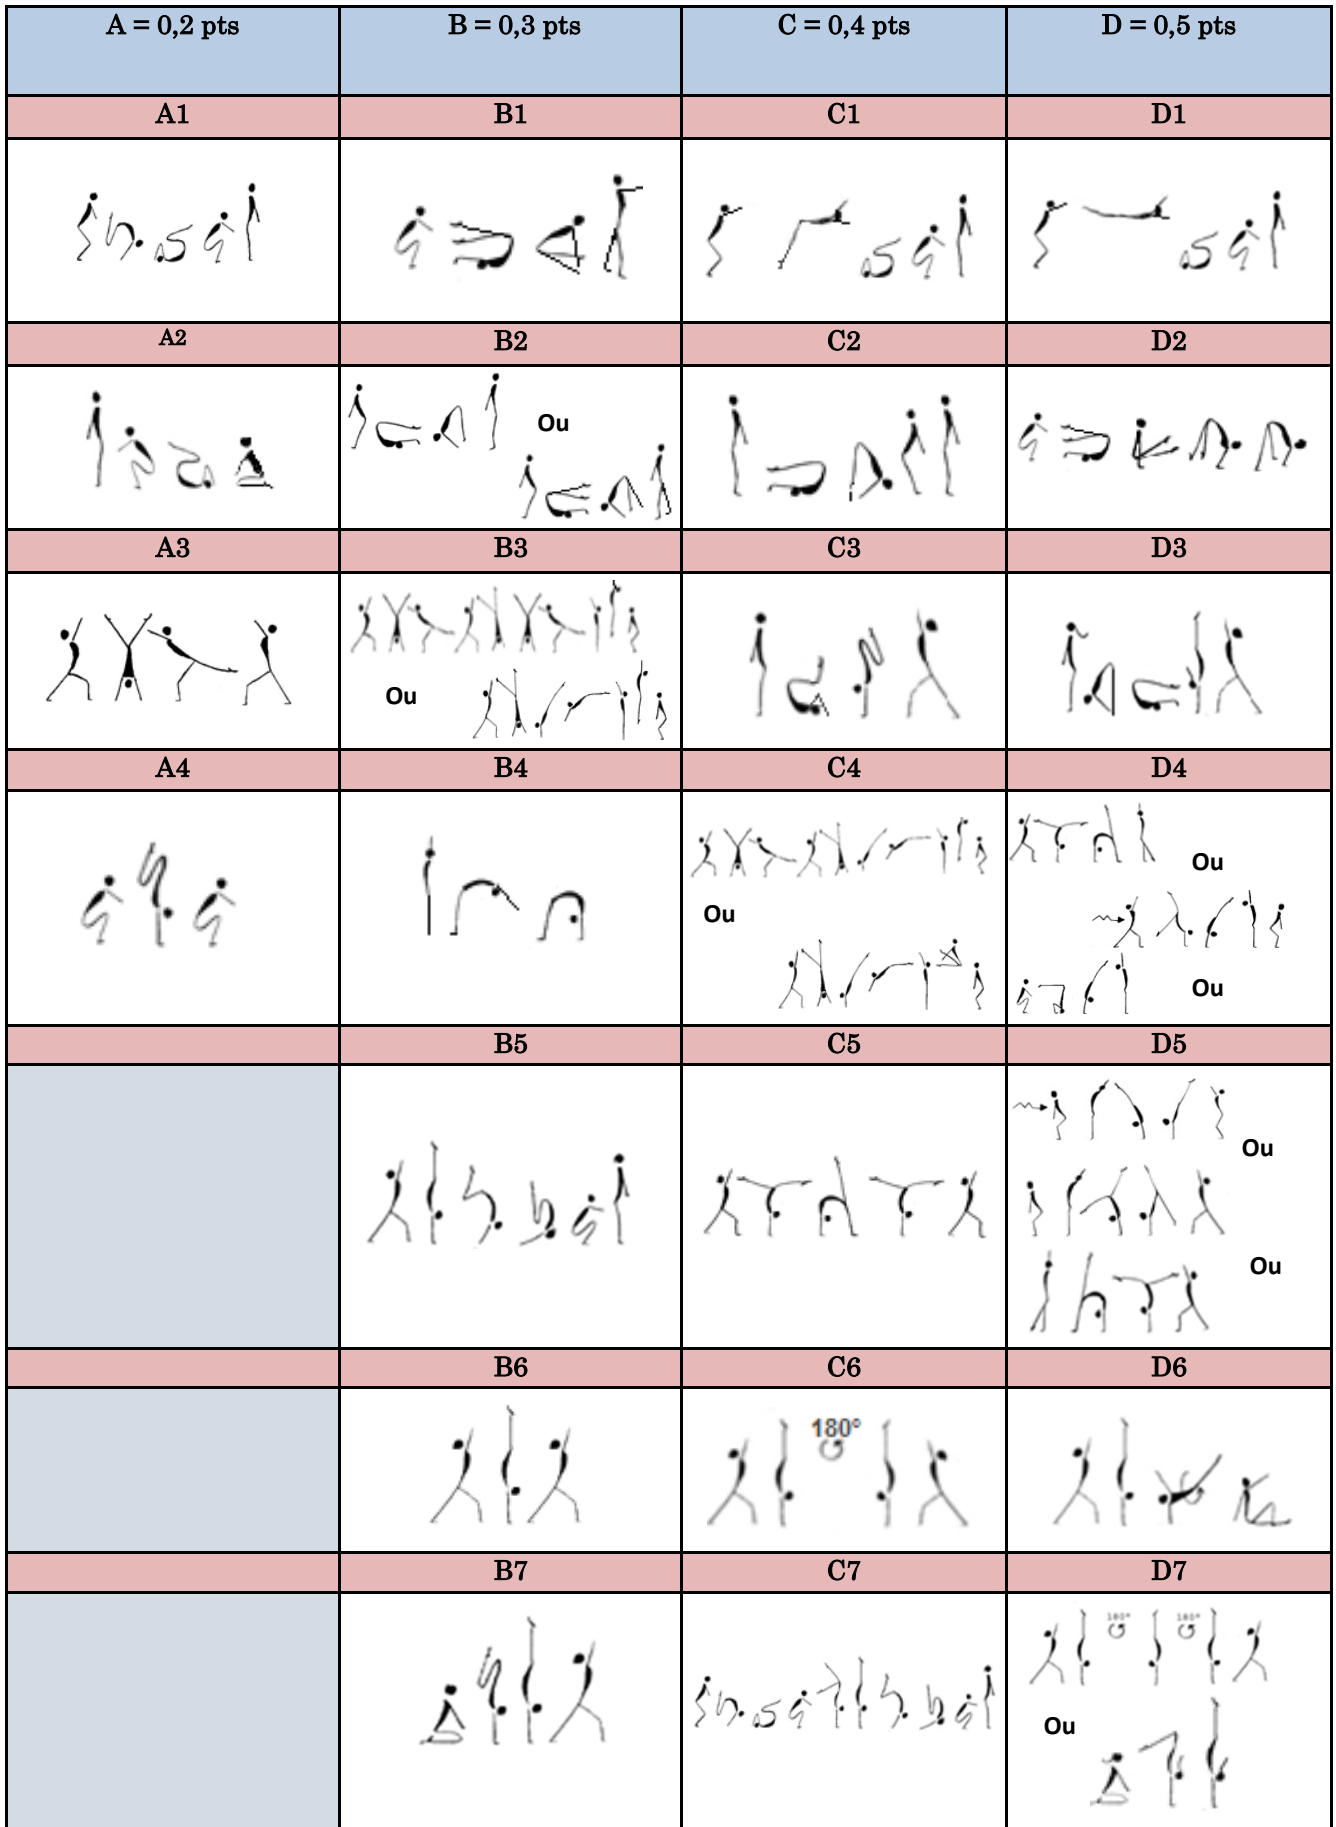 A = 0,2 pts B = 0,3 pts C = 0,4 pts D = 0,5 pts
A1 B1 C1 D1
A2 B2 C2 D2
Ou
A3 B3 C3 D3
Ou
A4 B4 C4 D4
Ou
Ou
Ou
B5 C5 D5
Ou
Ou
B6 C6 D6
180°
B7 C7 D7
180° 180°
Ou